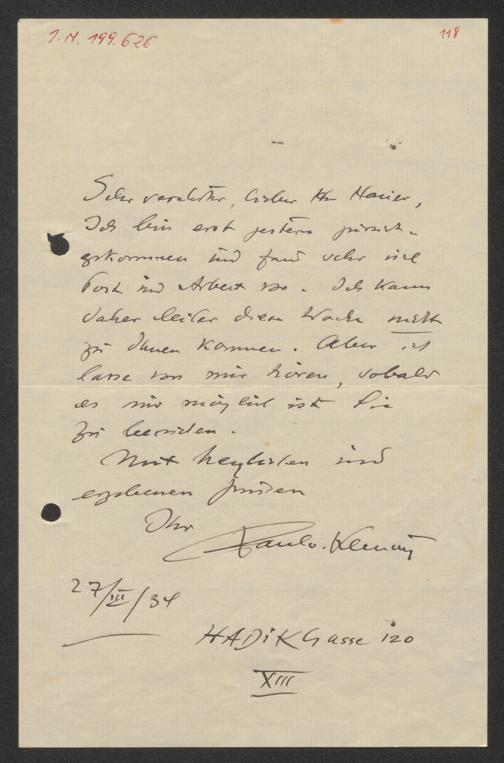 I.N. 199.626
118
Sehr verehrter, lieber Herr Hauer,
Ich bin erst gestern zurück-
gekommen und fand sehr viel
Post und Arbeit vor. Ich kann
daher leider diese Woche nicht
zu Ihnen kommen. Aber ich
lasse von mir hören, sobald
es mir möglich ist Sie
zu besuchen.
Mit herzlichen und
ergebenen Grüßen
Ihr
27/III/34
HADIKGasse 120
XIII